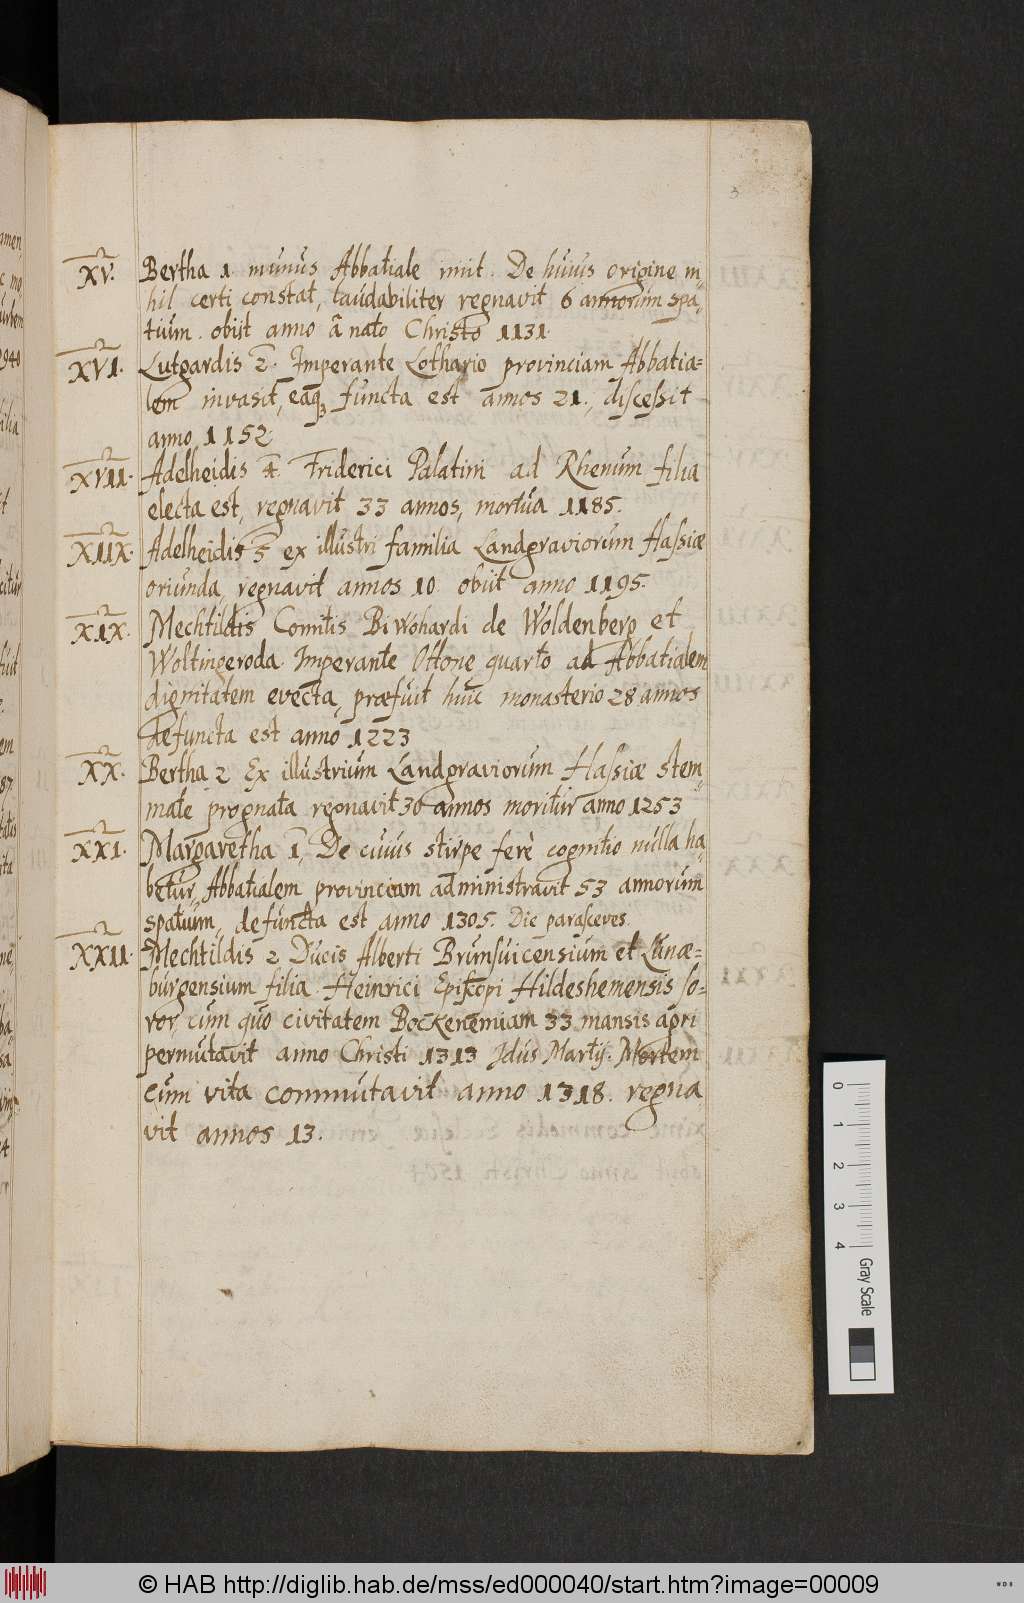 3
XV. Bertha 1 munus Abbatiale iniit. De huius origine ni
hil certi constat, laudabiliter regnavit 6 annorum spa-
tium. obiit anno â nato Christo 1131.
XVI. Lutgardis 2. Imperante Lothario provinciam Abbatia=
lem invasit, eaq₃ functa est annos 21., discessit
anno 1152
XVII. Adelheidis 4. Friderici Palatini ad Rhenum filia
electa est, regnavit 33 annos, mortua 1185.
XIIX. Adelheidis 5 ex illustri familia Landgraviorum Hassiæ
oriunda, regnavit annos 10 obiit anno 1195.
XIX. Mechtildis Comitis Biwohardi de Woldenberg et
Woltingeroda Imperante Ottone quarto ad Abbatialem
dignitatem evecta, præfuit huic monasterio 28 annos
defuncta est anno 1223
XX. Bertha 2 Ex illustrium Landgraviorum Hassiæ stem
mate prognata regnavit 30 annos moritur anno 1253
XXI. Margaretha 1, De cuius stirpe ferè cognitio nulla ha
betur, Abbatialem provinciam administravit 53 annorum
spatium, defuncta est anno 1305. Die parasceves.
XXII. Mechtildis 2 Ducis Alberti Brunsuicensium et Lunæ=
burgensium filia Heinrici Episcopi Hildeshemensis so=
ror, cum quo civitatem Bockenemiam 33 mansis agri
permutavit anno Christi 1313 Idus Martij. Mortem
cum vita commutavit anno 1318. regna
vit annos 13.
0 1 2 3 4 Gray Scale
© HAB http://diglib.hab.de/mss/ed000040/start.htm?image=00009